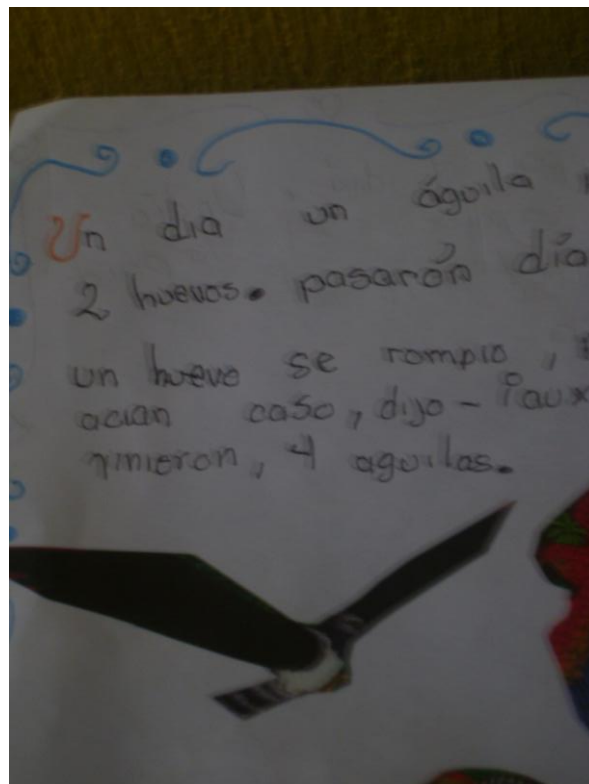 Un dia un águila
2 huevos. pasarón día
un huevo se rompio,
acian caso, dijo - ¡aux
vinieron, 4 aguilas.